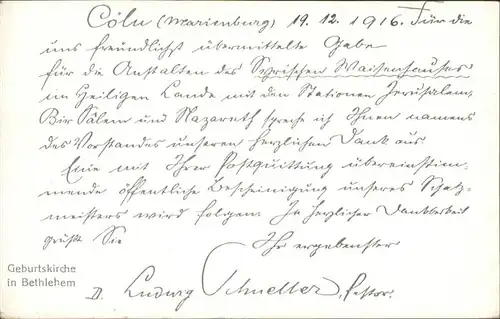 Cöln (Marienburg) 19. 12. 1916. Für die
uns freundlichst übermittelte Gabe
für die Anstalten des Syrischen Waisenhauses
im Heiligen Lande mit den Stationen Jerusalem,
Bir Sâlem und Nazareth spreche ich Ihnen namens
des Vorstandes unseren herzlichen Dank aus
Eine mit Ihrer Postquittung übereinstim-
mende öffentliche Bescheinigung unseres Schatz-
meisters wird folgen. In herzlicher Dankbarkeit
grüßt Sie
Ihr ergebenster
D. Ludwig Schneller, Pastor.
Geburtskirche
in Bethlehem